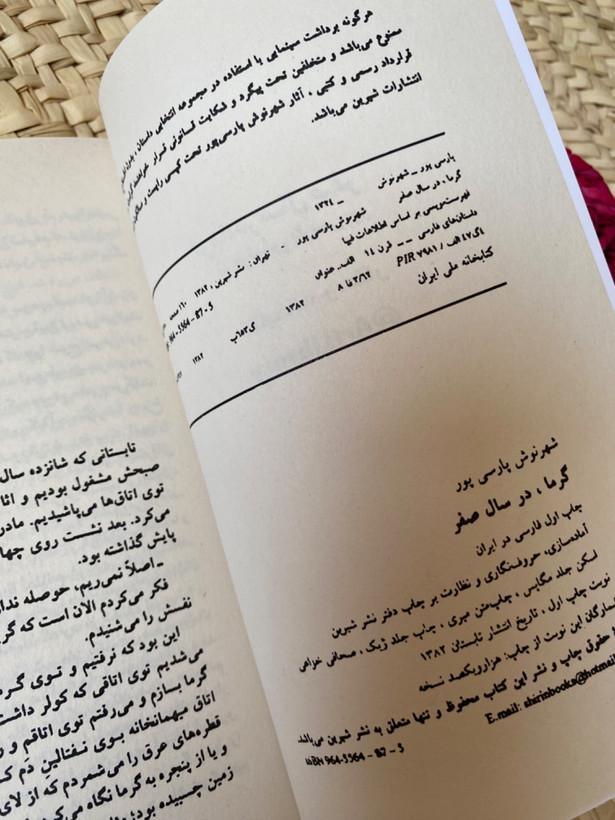 هرگونه برداشت سینمایی یا استفاده در مجموعه انتخابی داستان، بدون
ممنوع می‌باشد و متخلفین تحت پیگرد و شکایت قانونی قرار خواهند
قرارداد رسمی و کتبی، آثار شهرنوش پارسی‌پور تحت کپی رایت و
انتشارات شیرین می‌باشد.
پارسی پور ــ شهرنوش ــ ۱۳۲۴
گرما، در سال صفر شهرنوش پارسی پور - تهران: نشر شیرین، ۱۳۸۲، ۱۶۰
964-5564-87-5
فهرست‌نویسی بر اساس اطلاعات فیپا
داستان‌های فارسی ــ قرن ۱۴ الف. عنوان
PIR ۷۹۸۱ / ۴۷الف ۸ فا ۳/۶۲ ۱۳۸۲
کتابخانه ملی ایران
شهرنوش پارسی پور
گرما، در سال صفر
چاپ اول فارسی در ایران
آماده‌سازی، حروف‌نگاری و نظارت بر چاپ دفتر نشر شیرین
اسکن جلد مگاپس، چاپ‌متن میری، چاپ جلد ژیک، صحافی خزاهی
نوبت چاپ اول، تاریخ انتشار تابستان ۱۳۸۲
شمارگان این نوبت از چاپ: هزارویکصد نسخه
حقوق چاپ و نشر این کتاب محفوظ و تنها متعلق به نشر شیرین می‌باشد.
E.mail: shirinbooks@hotmail
ISBN 964-5564-87-5
تابستانی که شانزده سال
صبحش مشغول بودیم و اثا
توی اتاق‌ها می‌پاشیدیم. مادر
می‌کرد. بعد نشست روی چها
پایش گذاشته بود.
ـ اصلاً نمی‌ریم، حوصله ندار
فکر می‌کردم الان است که گر
نفسش را می‌شنیدم.
این بود که نرفتیم و توی گر
می‌شدیم توی اتاقی که کولر داشت
گرما بسازم و می‌رفتم توی اتاقم و ر
اتاق میهمانخانه بوی نفتالین دَم ک
قطره‌های عرق را می‌شمردم که از لای
و یا از پنجره به گرما نگاه می‌کر
زمین چسبیده بود: